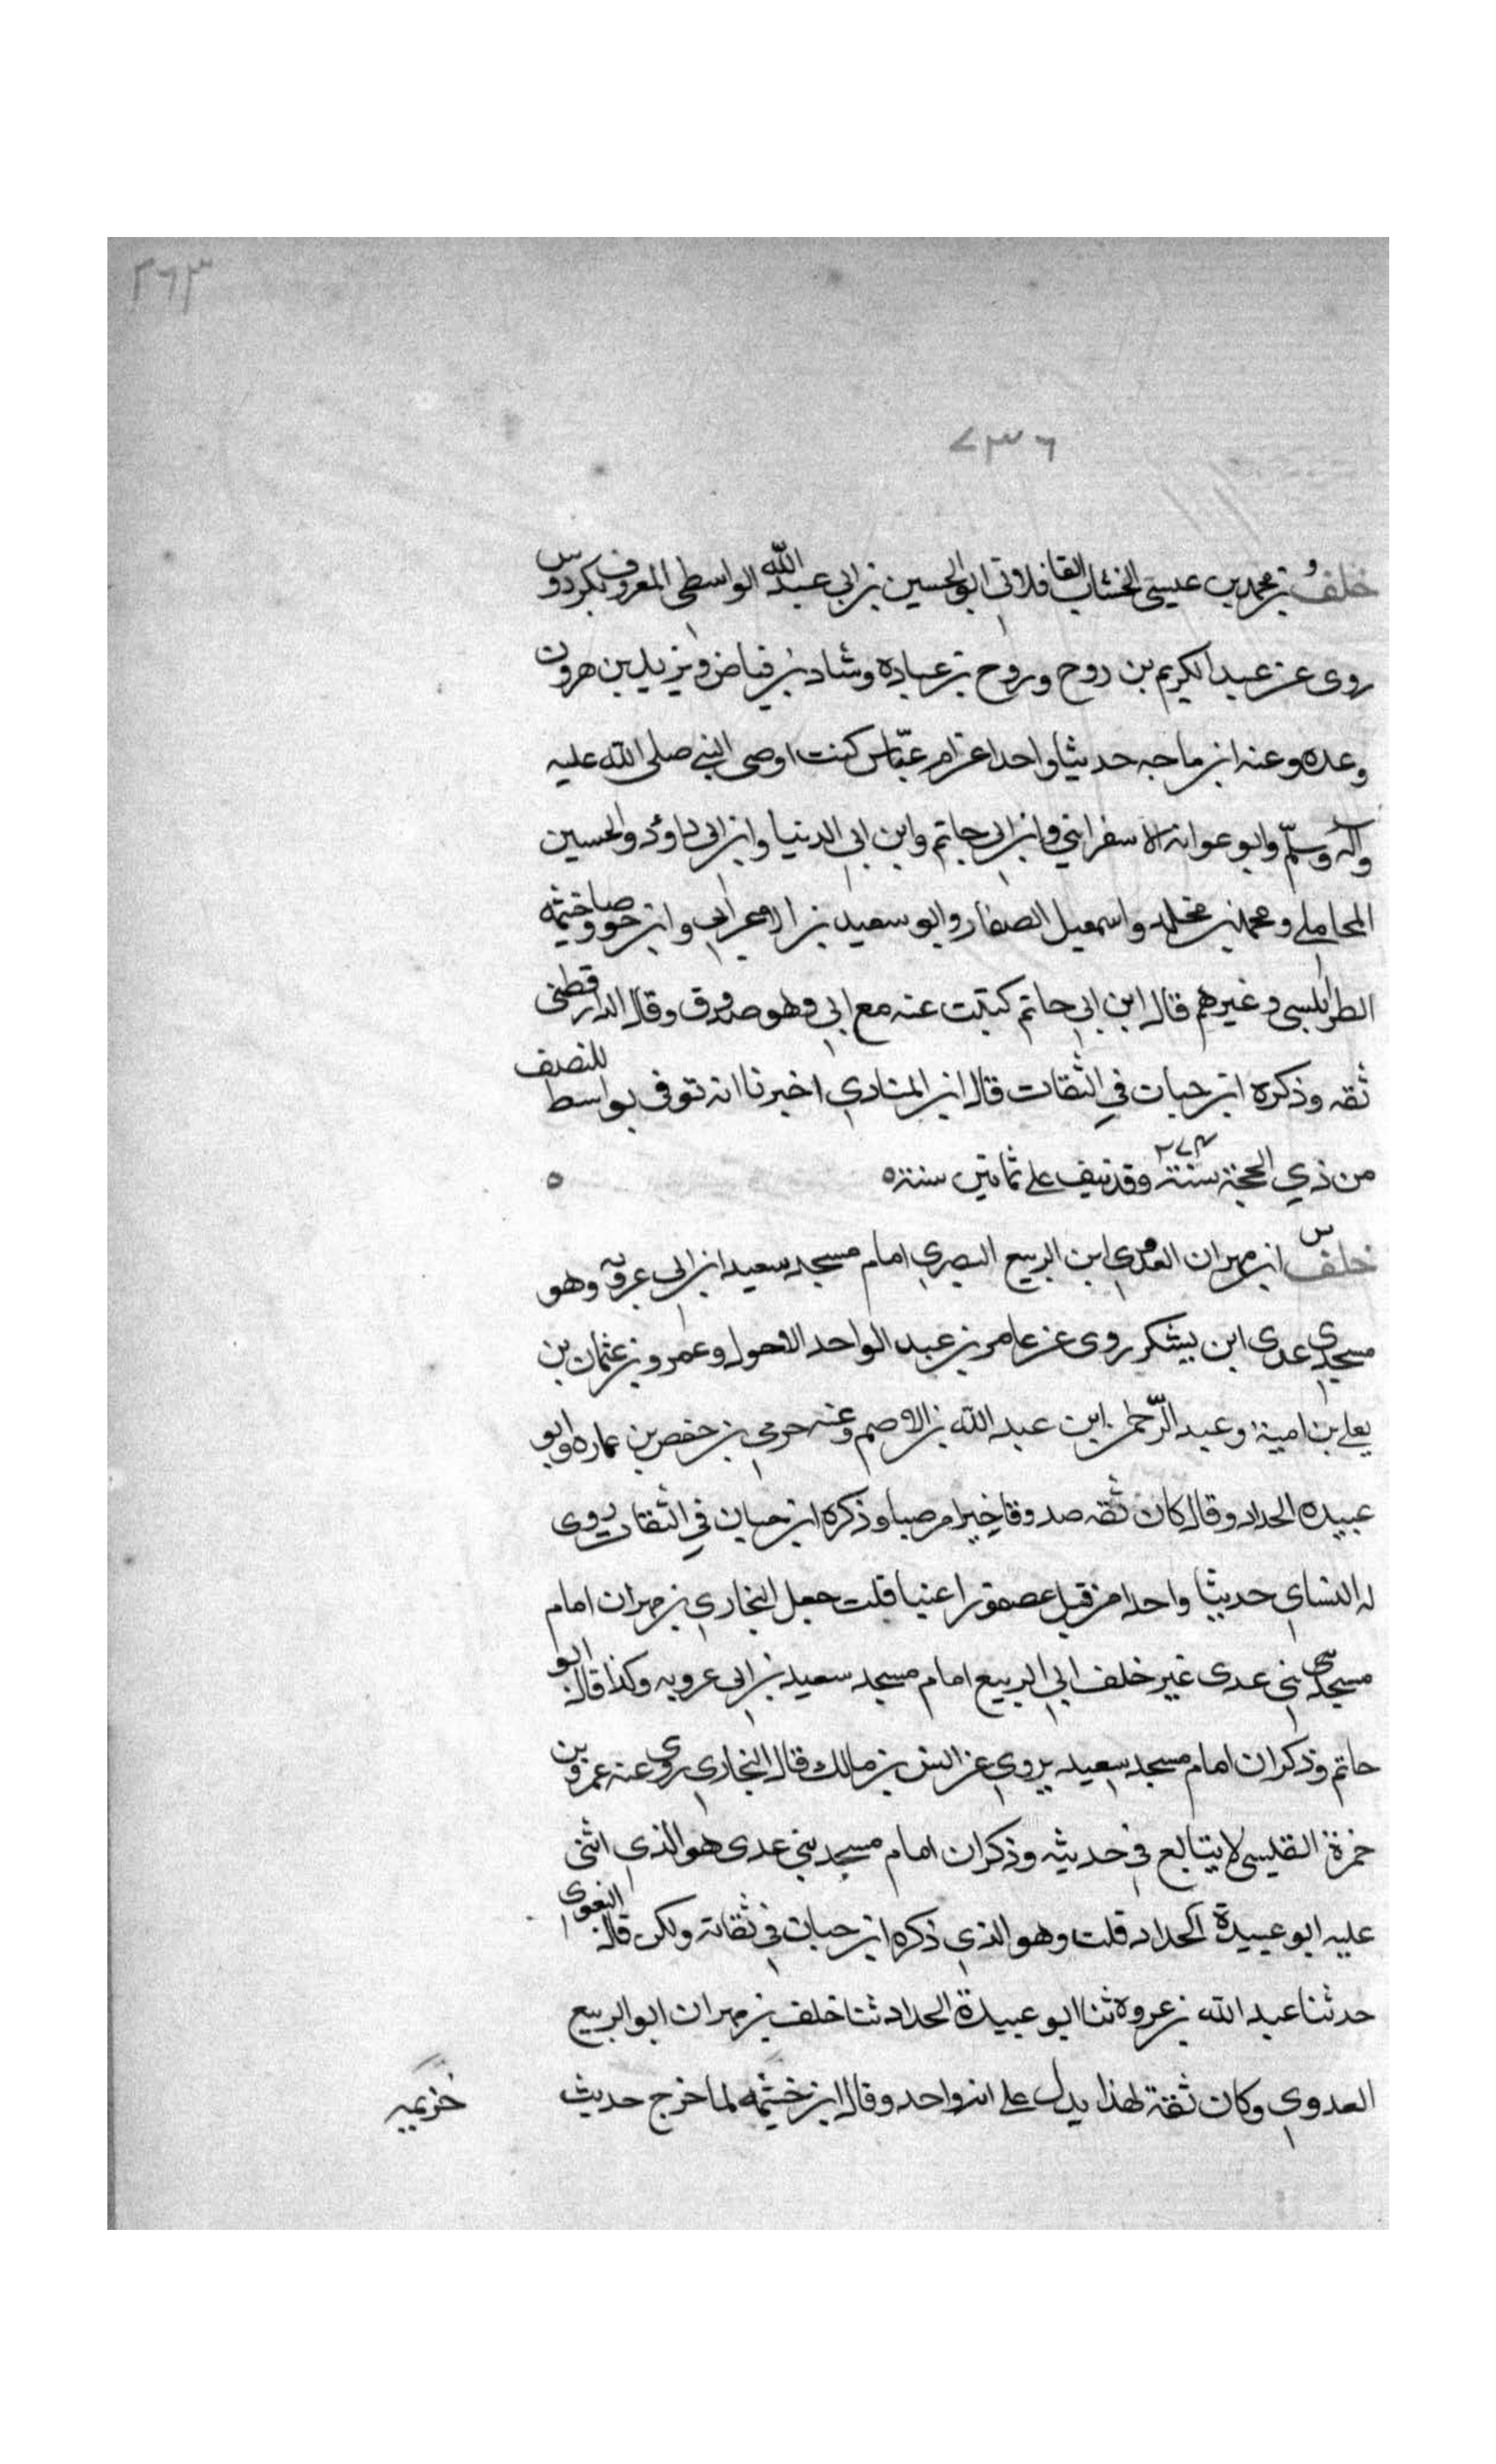 ٣٦٣
٧٣٦
خلف بن محمد بن عيسى الخشاب القافلاتى ابو الحسين بن ابى عبد الله الواسطى المعروف بكردوس
روى عن عبد الكريم بن روح وروح بن عباده وشاد بن فياض ويزيد بن هرون
وعده وعنه ابن ماجه حديثا واحدا عن ام عياس كنت اوضى النبي صلى الله عليه
وآله وسلم وابو عوانه الاسفراينى وابن ابى حاتم وابن ابى الدنيا وابن ابى داود والحسين
المحاملى ومحمد بن مخلد واسمعيل الصفار وابو سعيد بن الاعرابى وابن خيثمه
الطرابلسى وغيرهم قال ابن ابي حاتم كتبت عنه مع ابى وهو صدوق وقال الدارقطنى
ثقه وذكره ابن حبان في الثقات قال ابن المنادي اخبرنا انه توفى بواسط للنصف
من ذي الحجة سنة ٢٧٤ وقد نيف على ثمانين سنة ٥ ٥
خلف س ابن مهران العدوي ابن الربيع البصري امام مسجد سعيد ابن ابى عروبه وهو
مسجد بنى عدى ابن يشكر روى عن عامر بن عبد الواحد الاحول وعمرو بن عثمان بن
يعلى بن امية وعبد الرحمن ابن عبد الله بن الاصم وعنه حرمى بن حفص بن عماره وابو
عبيده الحداد وقال كان ثقه صدوقا خيرا مرضيا وذكره ابن حبان في الثقات روى
له النساى حديثا واحدا من قتل عصفورا عنيا قلت جعل البخاري بن مهران امام
مسجد بنى عدى غير خلف ابى الربيع امام مسجد سعيد بن ابى عروبه وكذا قال ابو
حاتم وذكر ان امام مسجد سعيد يروي عن انس بن مالك قال البخارى روى عنه عمرو بن
حمزة القليسى لا يتابع في حديثه وذكر ان امام مسجد بنى عدى هو الذي اثنى
عليه ابو عبيدة الحداد قلت وهو الذي ذكره ابن حبان في ثقاته ولكن قال البغوى
حدثنا عبد الله بن عروه ثنا ابو عبيدة الحداد ثنا خلف بن مهران ابو الربيع
العدوي وكان ثقة لهذا يدل على انه واحد وقال ابن خثيمه لما خرج حديث
خزيمه